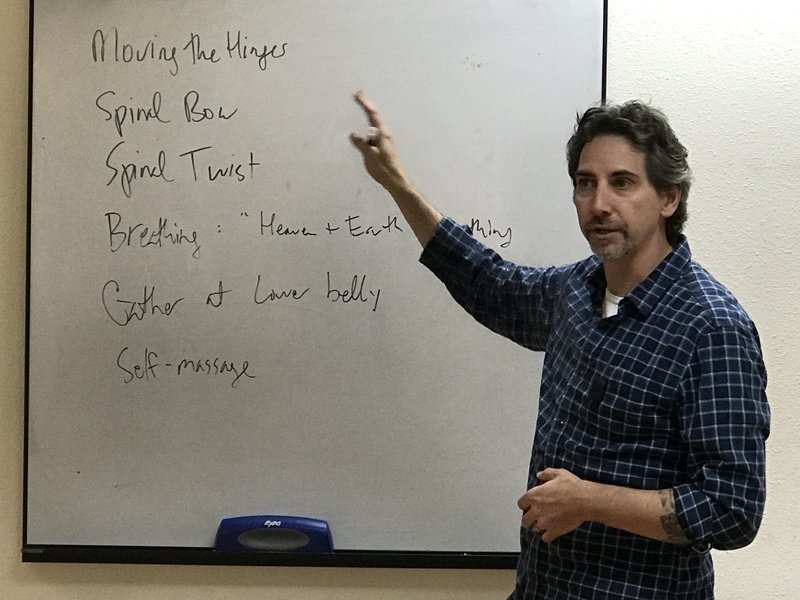 Moving the Hinges
Spinal Bow
Spinal Twist
Breathing : "Heaven + Earth
Gather at Lower belly
Self-massage
EXPO